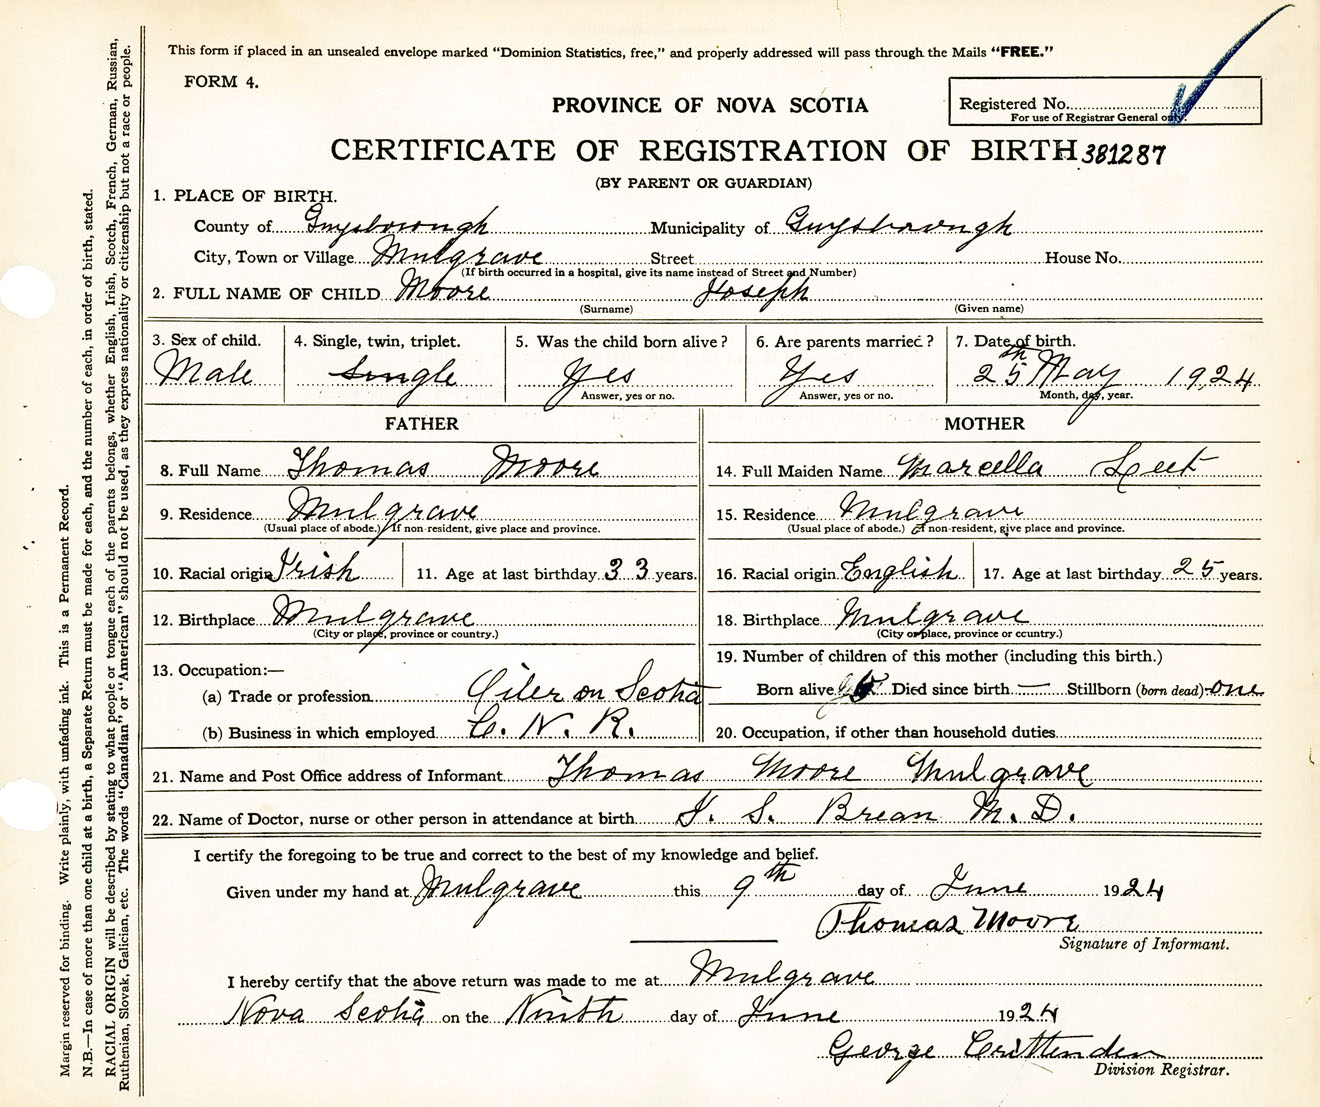 This form if placed in an unsealed envelope marked "Dominion Statistics, free," and properly addressed will pass through the Mails "FREE."
FORM 4.
PROVINCE OF NOVA SCOTIA
Registered No.
For use of Registrar General only.
CERTIFICATE OF REGISTRATION OF BIRTH 381287
(BY PARENT OR GUARDIAN)
1. PLACE OF BIRTH.
County of Guysborough Municipality of Guysborough
City, Town or Village Mulgrave Street House No.
(If birth occurred in a hospital, give its name instead of Street and Number)
2. FULL NAME OF CHILD Moore Joseph
(Surname) (Given name)
3. Sex of child. 4. Single, twin, triplet. 5. Was the child born alive? 6. Are parents married? 7. Date of birth.
Male Single Yes Yes 25th May 1924
Answer, yes or no. Answer, yes or no. Month, day, year.
FATHER MOTHER
8. Full Name Thomas Moore 14. Full Maiden Name Marcella Leet
9. Residence Mulgrave 15. Residence Mulgrave
(Usual place of abode.) If non-resident, give place and province. (Usual place of abode.) If non-resident, give place and province.
10. Racial origin Irish 11. Age at last birthday 33 years. 16. Racial origin English 17. Age at last birthday 25 years.
12. Birthplace Mulgrave 18. Birthplace Mulgrave
(City or place, province or country.) (City or place, province or country.)
13. Occupation:— 19. Number of children of this mother (including this birth.)
(a) Trade or profession Oiler on Scotia Born alive Died since birth — Stillborn (born dead) one
(b) Business in which employed C. N. R. 20. Occupation, if other than household duties
21. Name and Post Office address of Informant Thomas Moore Mulgrave
22. Name of Doctor, nurse or other person in attendance at birth S. Brean M. D.
I certify the foregoing to be true and correct to the best of my knowledge and belief.
Given under my hand at Mulgrave this 9th day of June 1924
Thomas Moore
Signature of Informant.
I hereby certify that the above return was made to me at Mulgrave
Nova Scotia on the Ninth day of June 1924
George Crittenden
Division Registrar.
Margin reserved for binding. Write plainly, with unfading ink. This is a Permanent Record.
N.B.—In case of more than one child at a birth, a Separate Return must be made for each, and the number of each, in order of birth, stated.
RACIAL ORIGIN will be described by stating to what people or tongue each of the parents belongs, whether English, Irish, Scotch, French, German, Russian,
Ruthenian, Slovak, Galician, etc. The words "Canadian" or "American" should not be used, as they express nationality or citizenship but not a race or people.